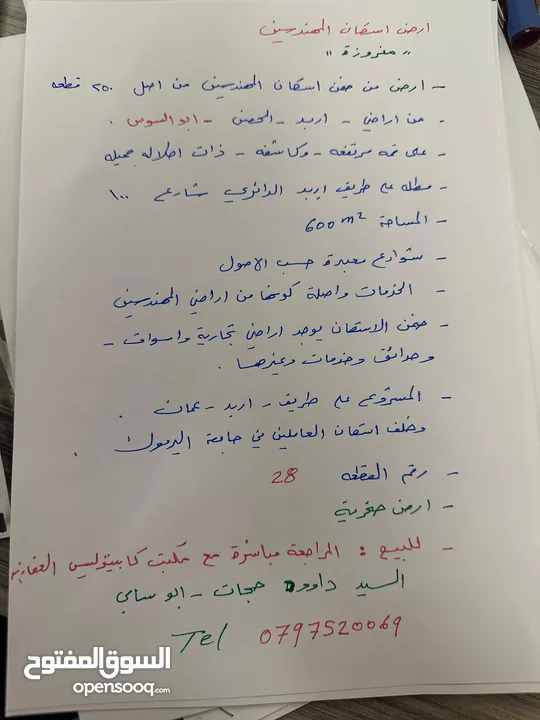 ارض اسكان المهندسين
" مفروزة "
- ارض من ضمن اسكان المهندسين من اصل ٢٥٠ قطعه
- من اراضي - اربد - الحصن - ابو السوس .
- على قمه مرتفعه - وكاشفه - ذات اطلاله جميله
- مطله على طريق اربد الدائري شارع ١٠٠
- المساحة 600 m²
- شوارع معبدة حسب الاصول
- الخدمات واصلة كونها من اراضي المهندسين
- ضمن الاسكان يوجد اراضي تجارية واسواق -
وحدائق وخدمات وغيرها .
- المشروع على طريق - اربد - عمان .
وخلف اسكان العاملين في جامعة اليرموك .
- رقم القطعه 28
- ارض صخرية
- للبيع : المراجعة مباشرة مع مكتب كابيتوليس العقارية
السيد داوود حجات - ابو سامي
Tel 0797520069
السوق المفتوح
opensooq.com